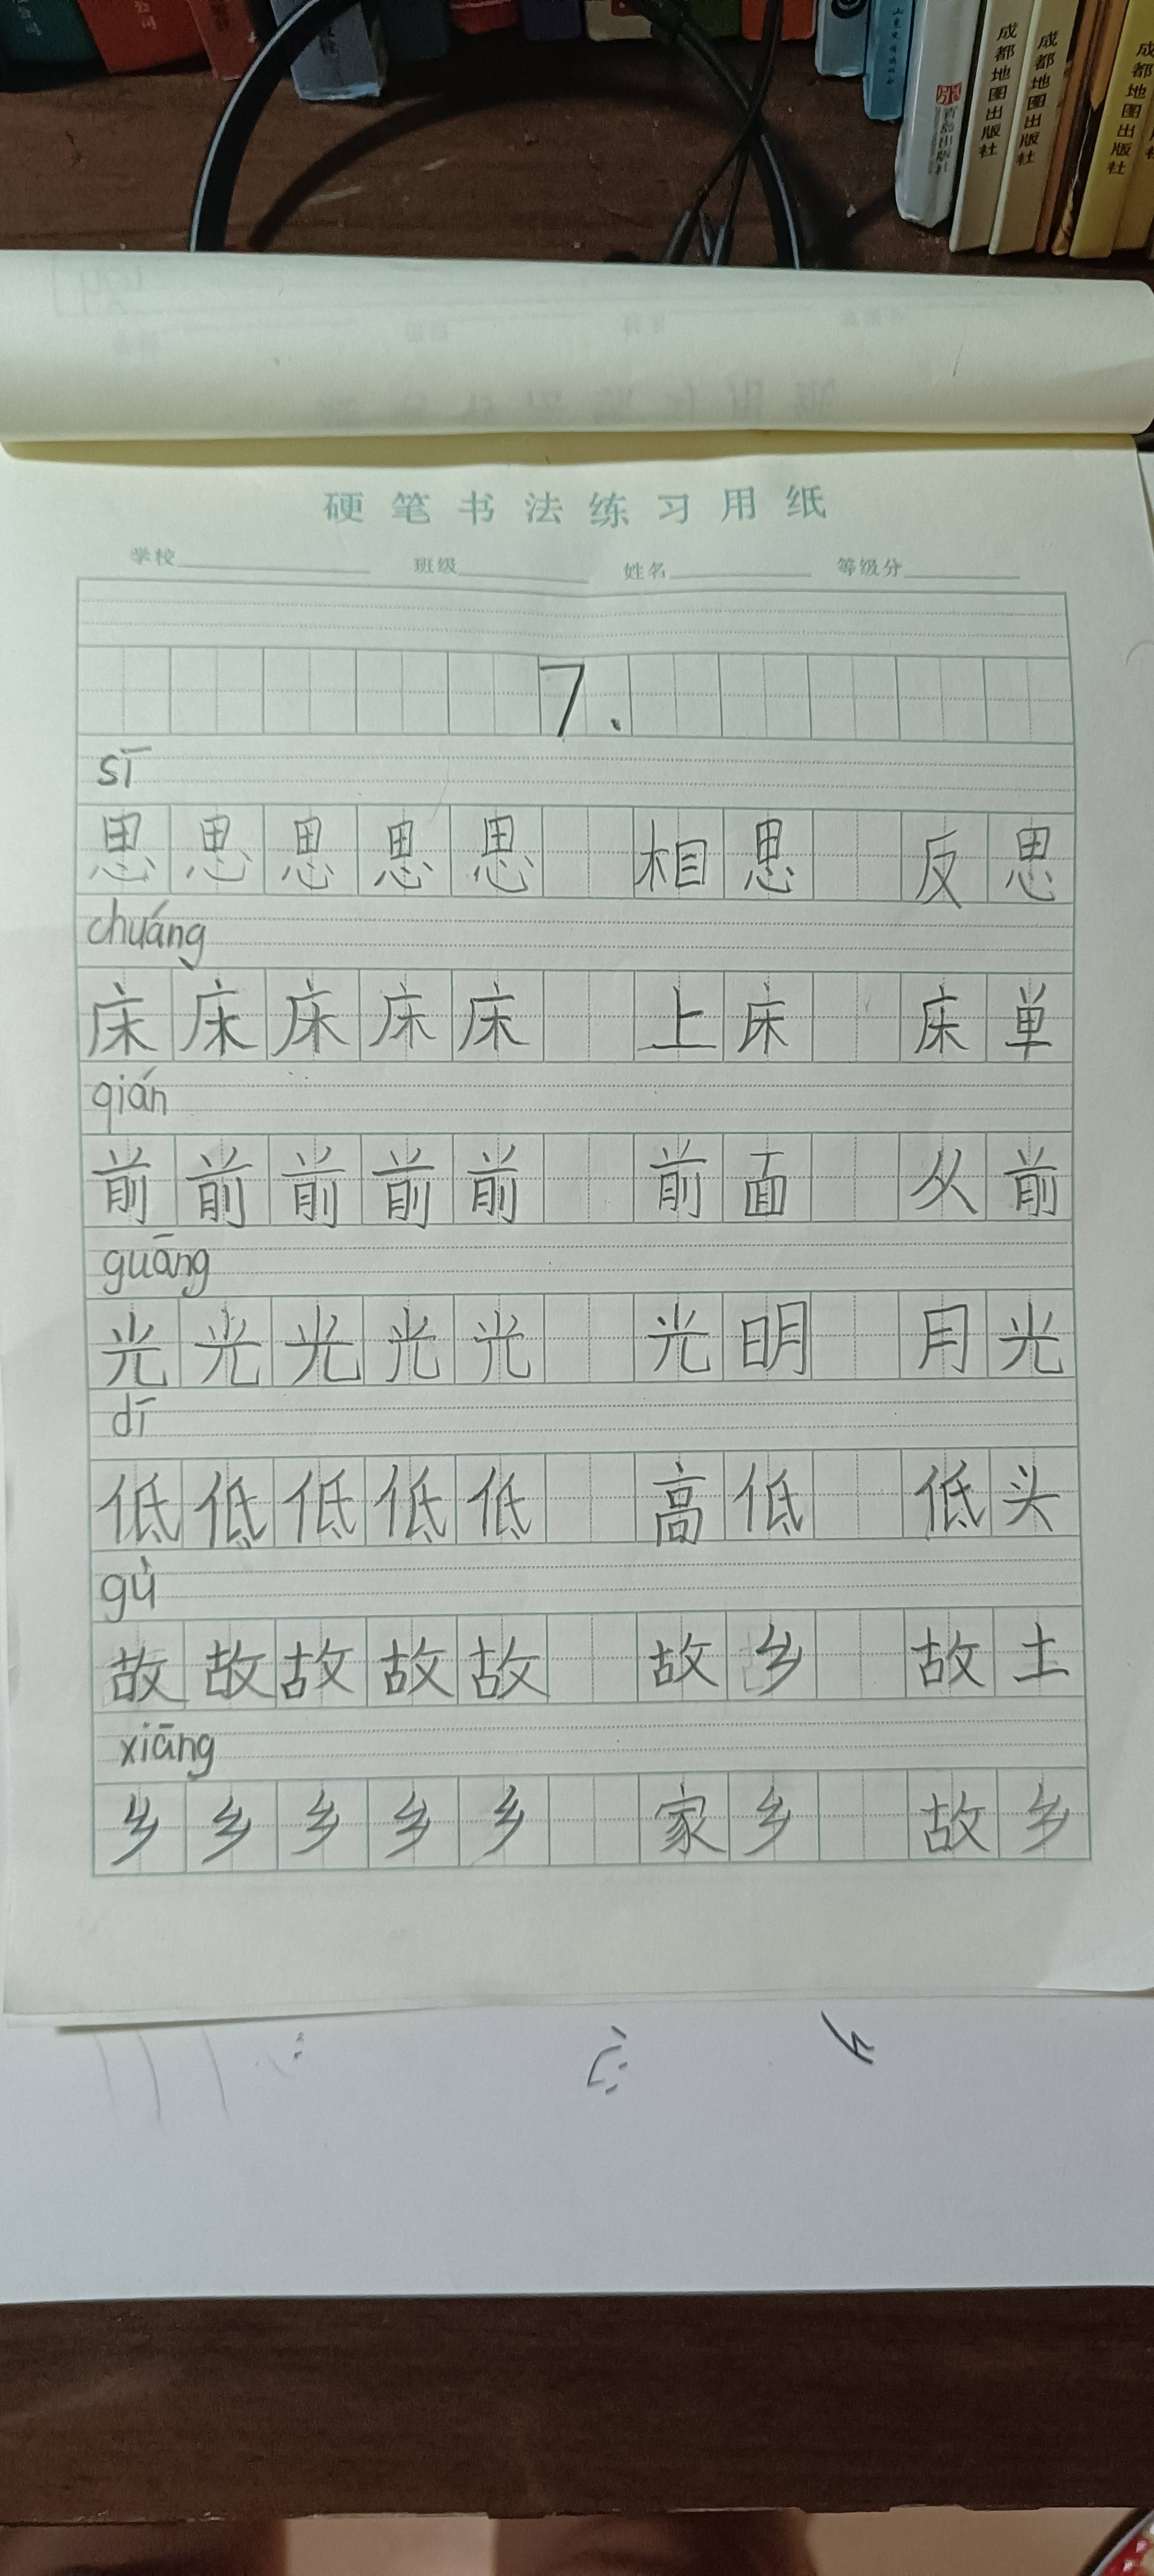 成都地图出版社
成都地图出版社
成都地图出版社
青岛出版社
硬笔书法练习用纸
学校 班级 姓名 等级分
7.
sī
思 思 思 思 思 相 思 反 思
chuáng
床 床 床 床 床 上 床 床 单
qián
前 前 前 前 前 前 面 从 前
guāng
光 光 光 光 光 光 明 月 光
dī
低 低 低 低 低 高 低 低 头
gù
故 故 故 故 故 故 乡 故 土
xiāng
乡 乡 乡 乡 乡 家 乡 故 乡